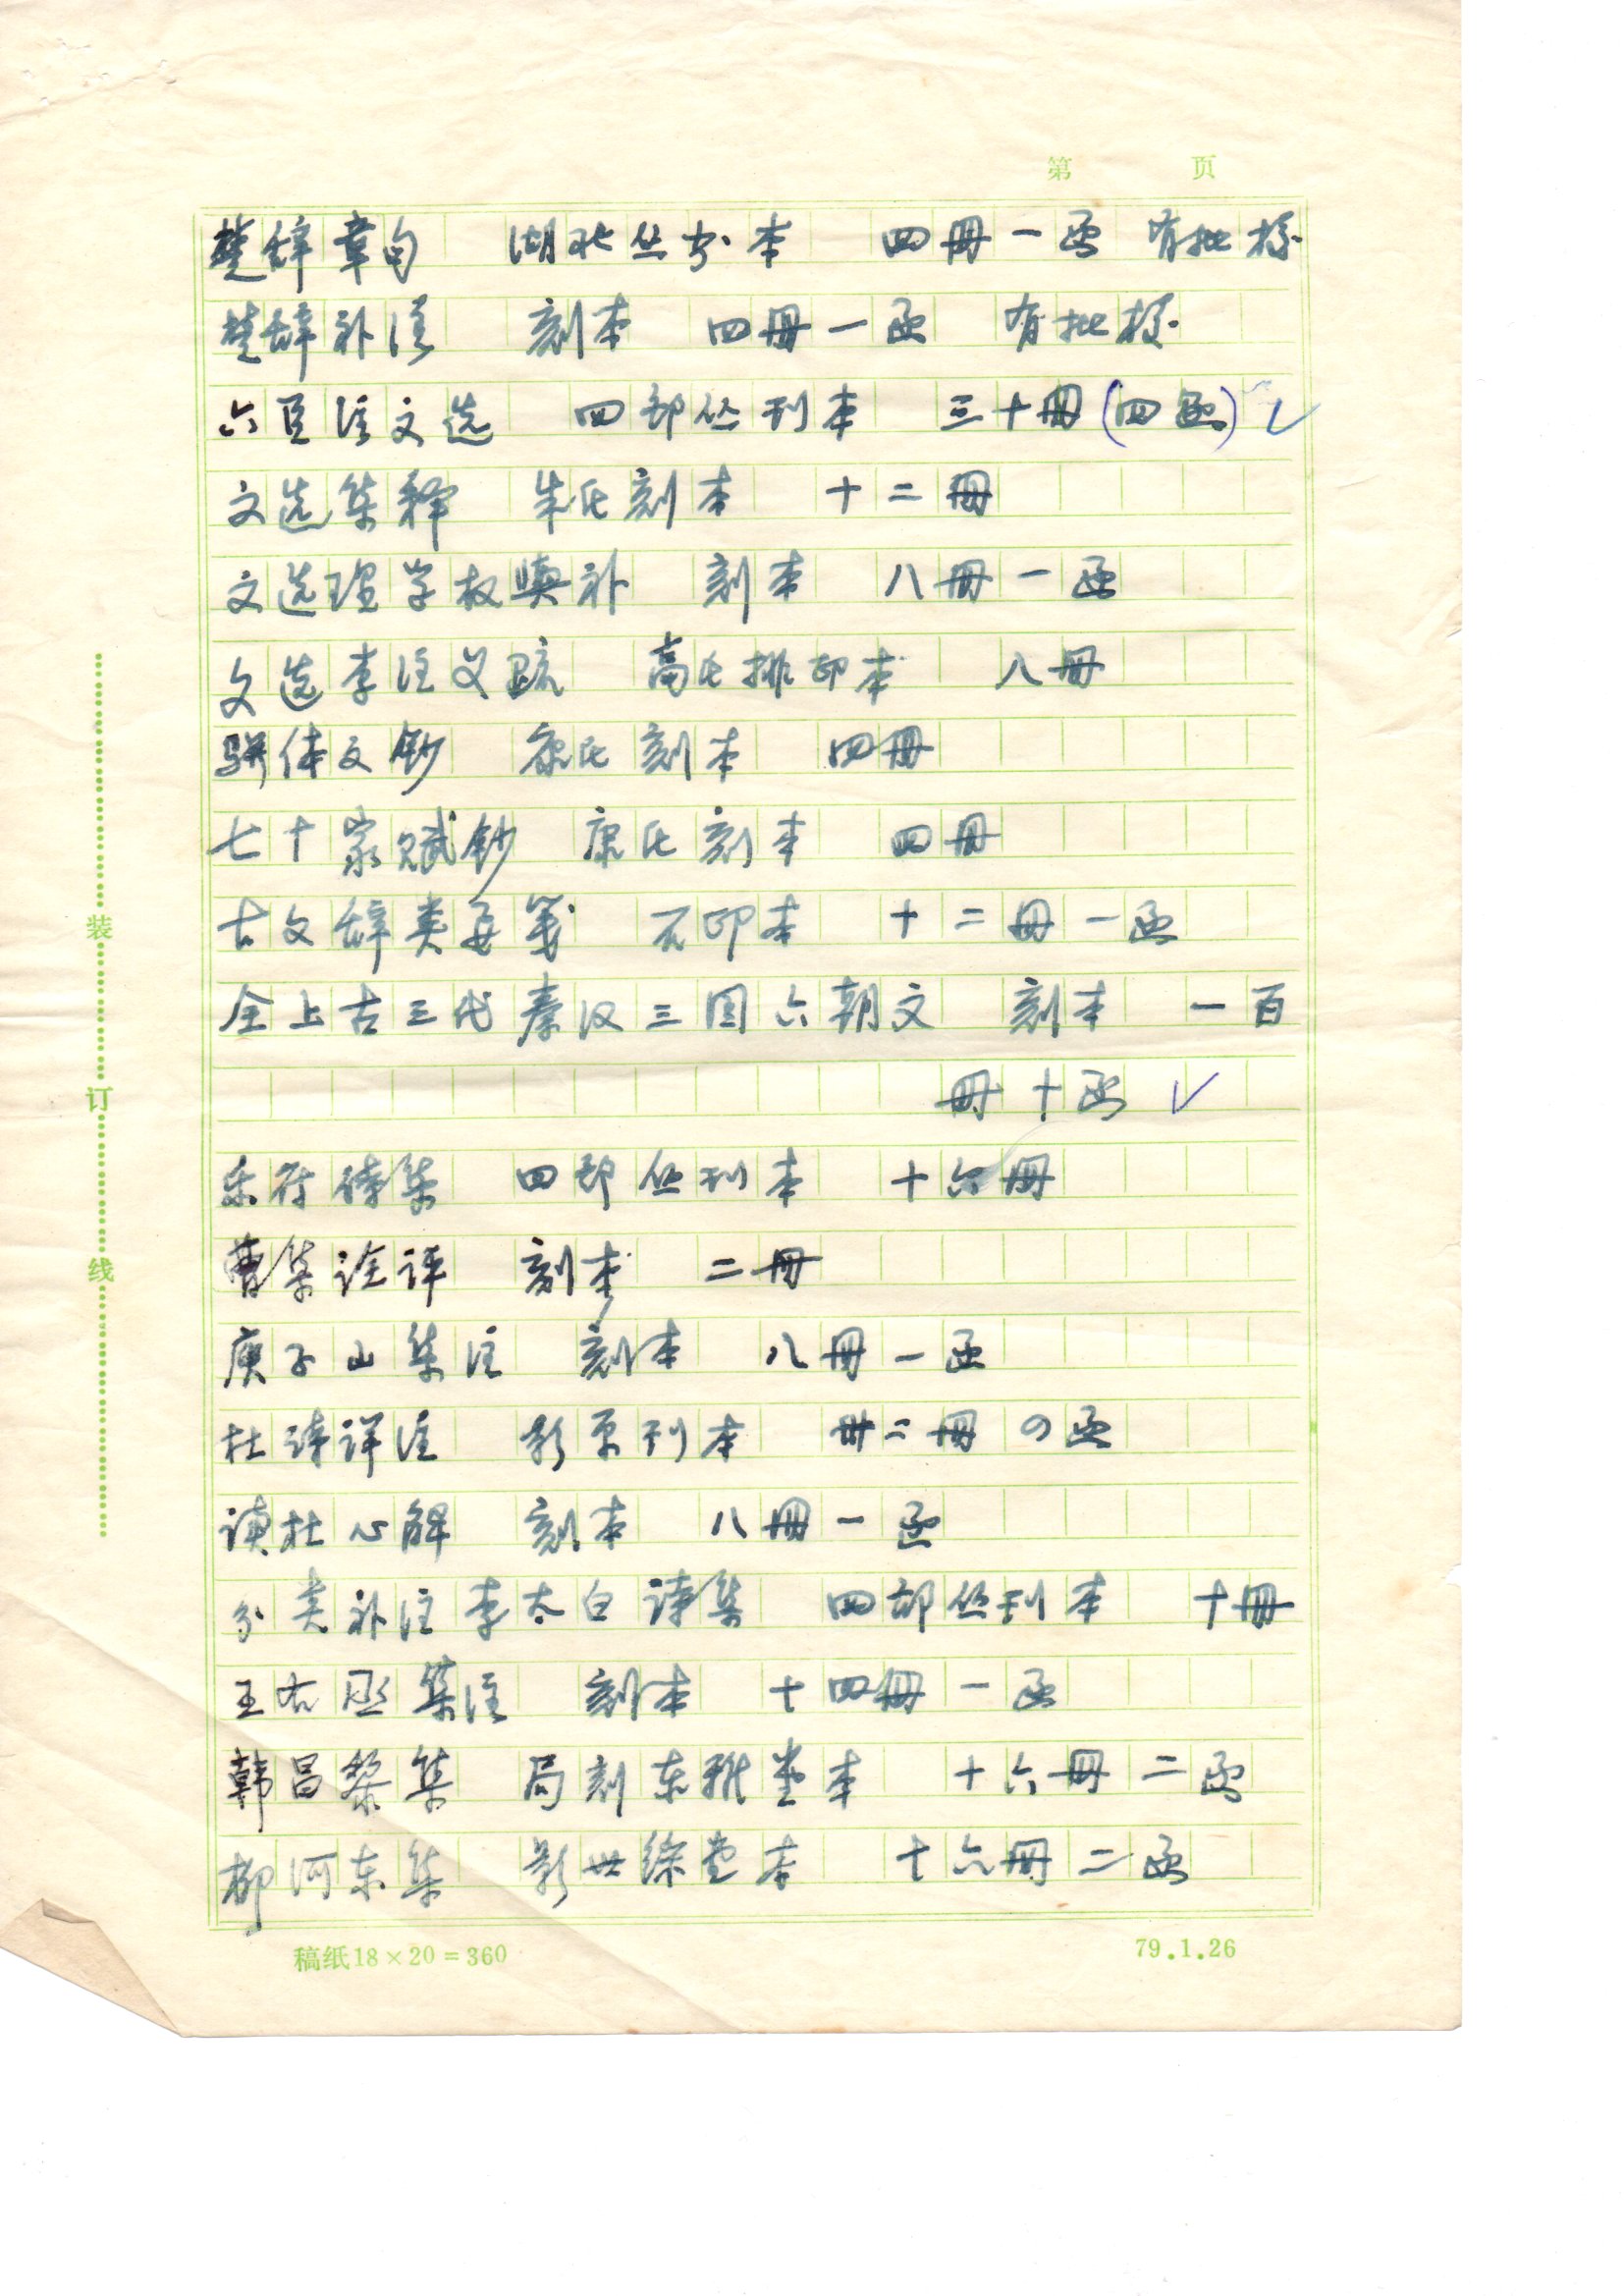 第 页
楚辞章句 湖北丛书本 四冊一函 有批校
楚辞补注 刻本 四冊一函 有批校
六臣注文选 四部丛刊本 三十冊(四函)✓
文选集释 朱氏刻本 十二冊
文选理学权舆补 刻本 八冊一函
文选李注义疏 高氏排印本 八冊
骈体文钞 康氏刻本 四冊
七十家赋钞 康氏刻本 四冊
古文辞类纂笺 石印本 十二冊一函
全上古三代秦汉三国六朝文 刻本 一百
冊十函 ✓
乐府诗集 四部丛刊本 十六冊
曹集诠评 刻本 二冊
庾子山集注 刻本 八冊一函
杜诗详注 影原刊本 卅二冊 四函
读杜心解 刻本 八冊一函
分类补注李太白诗集 四部丛刊本 十冊
王右丞集注 刻本 十四冊一函
韩昌黎集 局刻东雅堂本 十六冊二函
柳河东集 影世綵堂本 十六冊二函
装订线
稿纸18×20=360 79.1.26